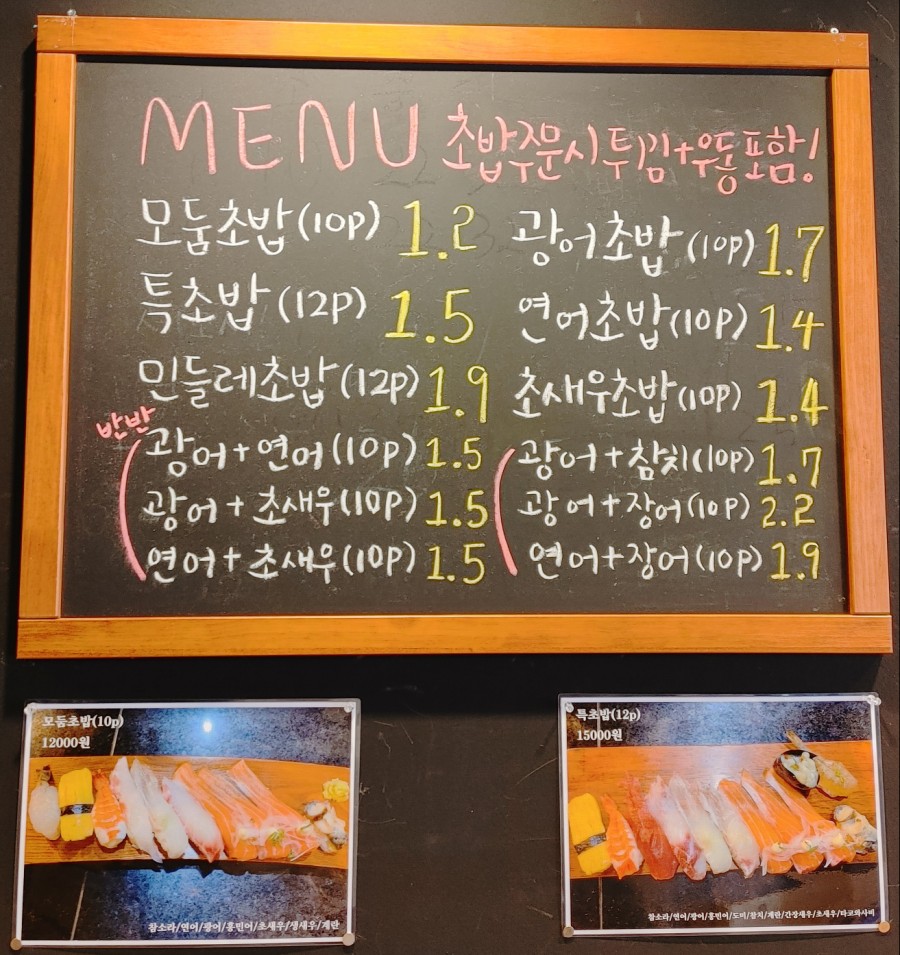 MENU 초밥주문시 튀김+우동 포함!
모둠초밥(10p) 1.2
특초밥(12p) 1.5
민들레초밥(12p) 1.9
반반
광어+연어(10p) 1.5
광어+초새우(10p) 1.5
연어+초새우(10p) 1.5
광어초밥(10p) 1.7
연어초밥(10p) 1.4
초새우초밥(10p) 1.4
광어+참치(10p) 1.7
광어+장어(10p) 2.2
연어+장어(10p) 1.9
모둠초밥(10p)
12000원
참소라/연어/광어/홍민어/초새우/생새우/계란
특초밥(12p)
15000원
참소라/연어/광어/홍민어/도미/참치/계란/간장새우/초새우/타코와사비